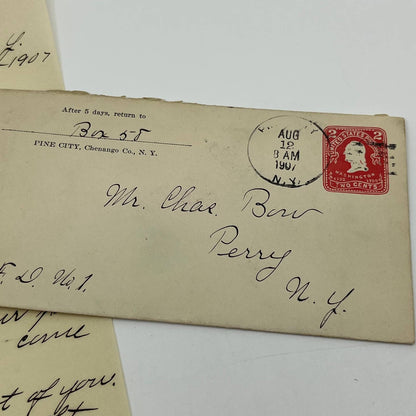 1907
After 5 days, return to
Box 58
PINE CITY, Chenango Co., N. Y.
AUG
12
8 AM
1907
N.Y.
2 UNITED STATES 2
WASHINGTON
TWO CENTS
Mr. Chas. Bow
Perry
N. Y.
F. D. No. 1.
come
t of you.